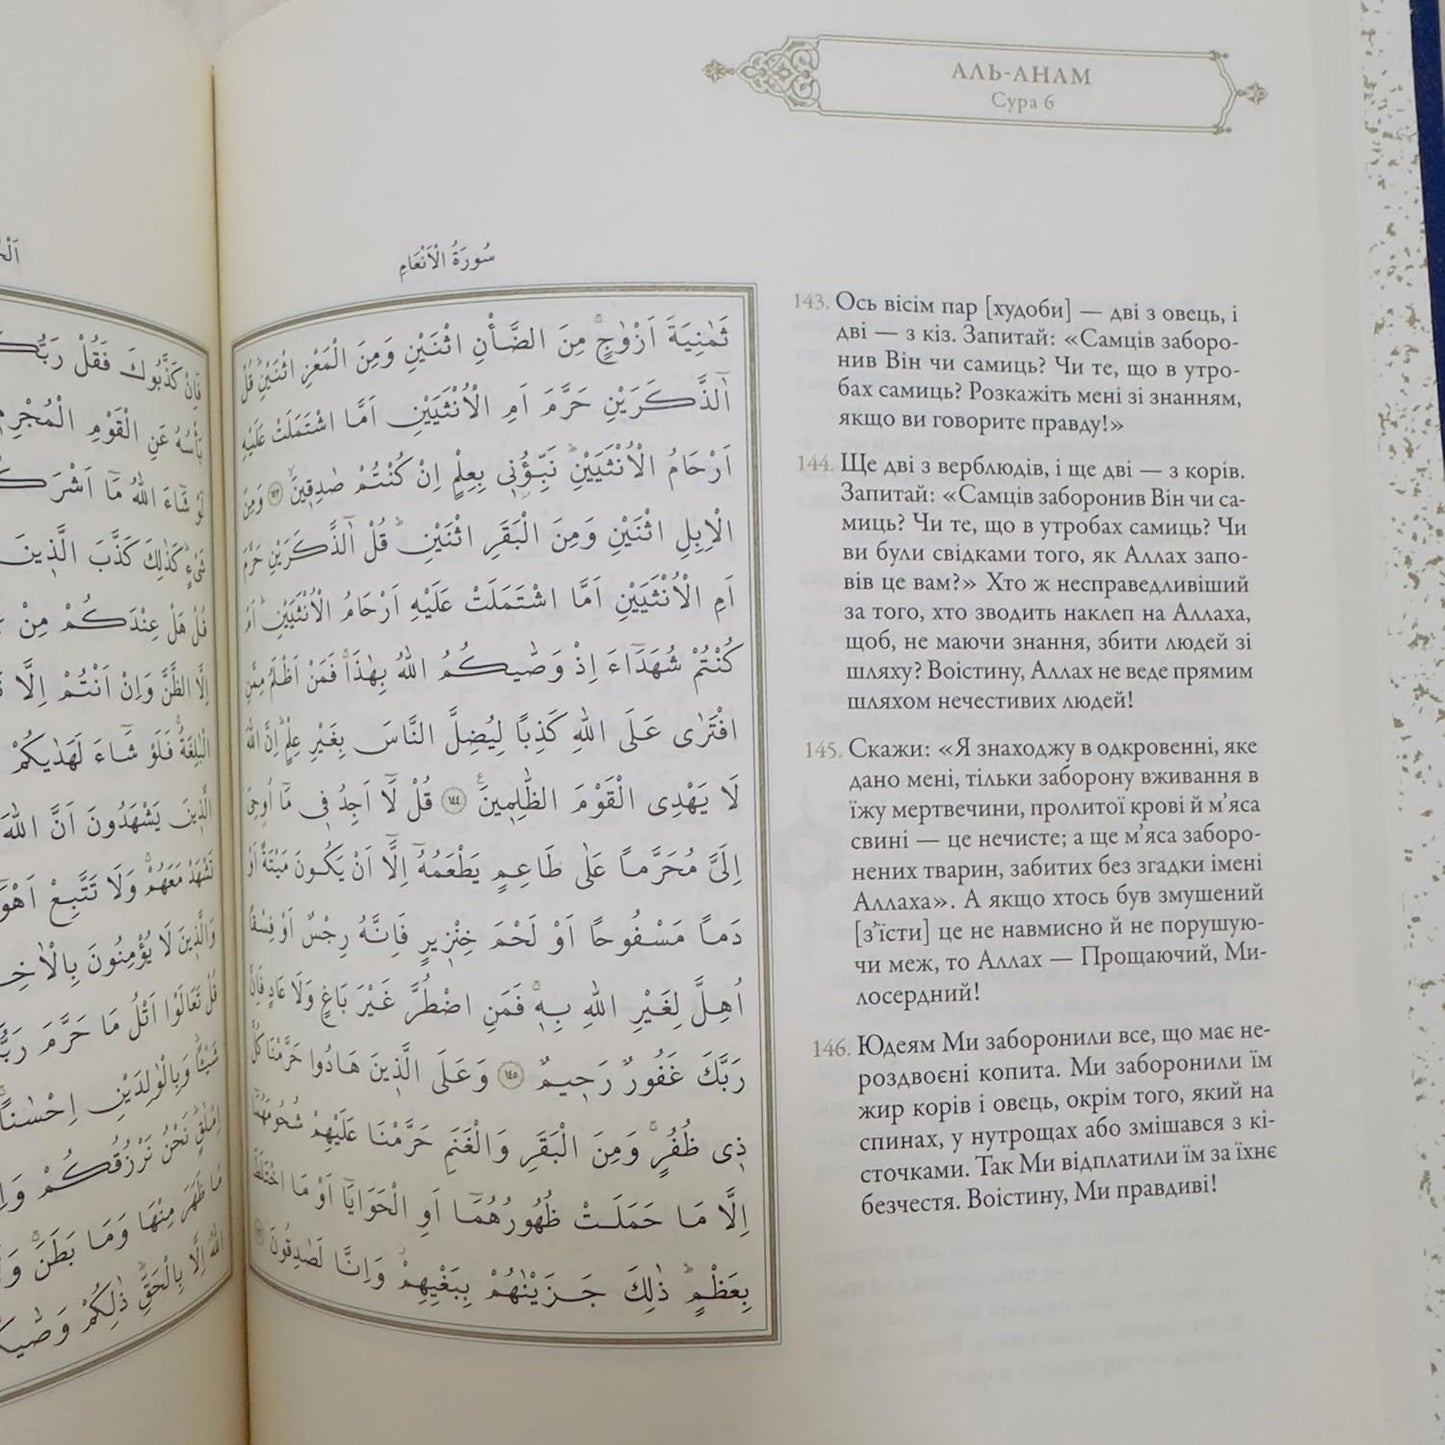 АЛЬ-АНАМ
Сура 6
سُورَةُ الْاَنْعَامِ
ثَمٰنِيَةَ اَزْوَاجٍۚ مِنَ الضَّأْنِ اثْنَيْنِ وَمِنَ الْمَعْزِ اثْنَيْنِۜ قُلْ
آٰلذَّكَرَيْنِ حَرَّمَ اَمِ الْاُنْثَيَيْنِ اَمَّا اشْتَمَلَتْ عَلَيْهِ
اَرْحَامُ الْاُنْثَيَيْنِۜ نَبِّؤُ۫ن۪ي بِعِلْمٍ اِنْ كُنْتُمْ صَادِق۪ينَۙ ﴿١٤٣﴾ وَمِنَ
الْاِبِلِ اثْنَيْنِ وَمِنَ الْبَقَرِ اثْنَيْنِۜ قُلْ آٰلذَّكَرَيْنِ حَرَّمَ
اَمِ الْاُنْثَيَيْنِ اَمَّا اشْتَمَلَتْ عَلَيْهِ اَرْحَامُ الْاُنْثَيَيْنِۜ اَمْ
كُنْتُمْ شُهَدَٓاءَ اِذْ وَصّٰيكُمُ اللّٰهُ بِهٰذَاۚ فَمَنْ اَظْلَمُ مِمَّنِ
افْتَرٰى عَلَى اللّٰهِ كَذِبًا لِيُضِلَّ النَّاسَ بِغَيْرِ عِلْمٍۜ اِنَّ اللّٰهَ
لَا يَهْدِي الْقَوْمَ الظَّالِم۪ينَ۟ ﴿١٤٤﴾ قُلْ لَٓا اَجِدُ ف۪ي مَٓا اُوحِيَ
اِلَيَّ مُحَرَّمًا عَلٰى طَاعِمٍ يَطْعَمُهُٓ اِلَّٓا اَنْ يَكُونَ مَيْتَةً اَوْ
دَمًا مَسْفُوحًا اَوْ لَحْمَ خِنْز۪يرٍ فَاِنَّهُ رِجْسٌ اَوْ فِسْقًا
اُهِلَّ لِغَيْرِ اللّٰهِ بِه۪ۚ فَمَنِ اضْطُرَّ غَيْرَ بَاغٍ وَلَا عَادٍ فَاِنَّ
رَبَّكَ غَفُورٌ رَح۪يمٌ ﴿١٤٥﴾ وَعَلَى الَّذ۪ينَ هَادُوا حَرَّمْنَا كُلَّ
ذ۪ي ظُفُرٍۚ وَمِنَ الْبَقَرِ وَالْغَنَمِ حَرَّمْنَا عَلَيْهِمْ شُحُومَهُمَٓا
اِلَّا مَا حَمَلَتْ ظُهُورُهُمَٓا اَوِ الْحَوَايَٓا اَوْ مَا اخْتَلَطَ
بِعَظْمٍۜ ذٰلِكَ جَزَيْنَاهُمْ بِبَغْيِهِمْۘ وَاِنَّا لَصَادِقُونَ
143. Ось вісім пар [худоби] — дві з овець, і
дві — з кіз. Запитай: «Самців заборо-
нив Він чи самиць? Чи те, що в утро-
бах самиць? Розкажіть мені зі знанням,
якщо ви говорите правду!»
144. Ще дві з верблюдів, і ще дві — з корів.
Запитай: «Самців заборонив Він чи са-
миць? Чи те, що в утробах самиць? Чи
ви були свідками того, як Аллах запо-
вів це вам?» Хто ж несправедливіший
за того, хто зводить наклеп на Аллаха,
щоб, не маючи знання, збити людей зі
шляху? Воістину, Аллах не веде прямим
шляхом нечестивих людей!
145. Скажи: «Я знаходжу в одкровенні, яке
дано мені, тільки заборону вживання в
їжу мертвечини, пролитої крові й м’яса
свині — це нечисте; а ще м’яса заборо-
нених тварин, забитих без згадки імені
Аллаха». А якщо хтось був змушений
[з’їсти] це не навмисно й не порушую-
чи меж, то Аллах — Прощаючий, Ми-
лосердний!
146. Юдеям Ми заборонили все, що має не-
роздвоєні копита. Ми заборонили їм
жир корів і овець, окрім того, який на
спинах, у нутрощах або змішався з кі-
сточками. Так Ми відплатили їм за їхнє
безчестя. Воістину, Ми правдиві!
فَاِنْ كَذَّبُوكَ فَقُلْ
بَأْسُهُ عَنِ الْقَوْمِ
لَوْ شَٓاءَ اللّٰهُ مَٓا
شَيْءٍۜ كَذٰلِكَ كَذَّبَ الَّذ۪ينَ
قُلْ هَلْ عِنْدَكُمْ مِنْ
اِلَّا الظَّنَّ وَاِنْ اَنْتُمْ اِلَّا
الْبَالِغَةُۚ فَلَوْ شَٓاءَ لَهَدٰيكُمْ
الَّذ۪ينَ يَشْهَدُونَ اَنَّ اللّٰهَ
تَشْهَدْ مَعَهُمْۚ وَلَا تَتَّبِعْ
وَالَّذ۪ينَ لَا يُؤْمِنُونَ
قُلْ تَعَالَوْا اَتْلُ مَا حَرَّمَ
شَيْـًٔا وَبِالْوَالِدَيْنِ اِحْسَانًاۚ
اِمْلَاقٍۜ نَحْنُ نَرْزُقُكُمْ
مَا ظَهَرَ مِنْهَا وَمَا بَطَنَۚ
اللّٰهُ اِلَّا بِالْحَقِّۜ ذٰلِكُمْ